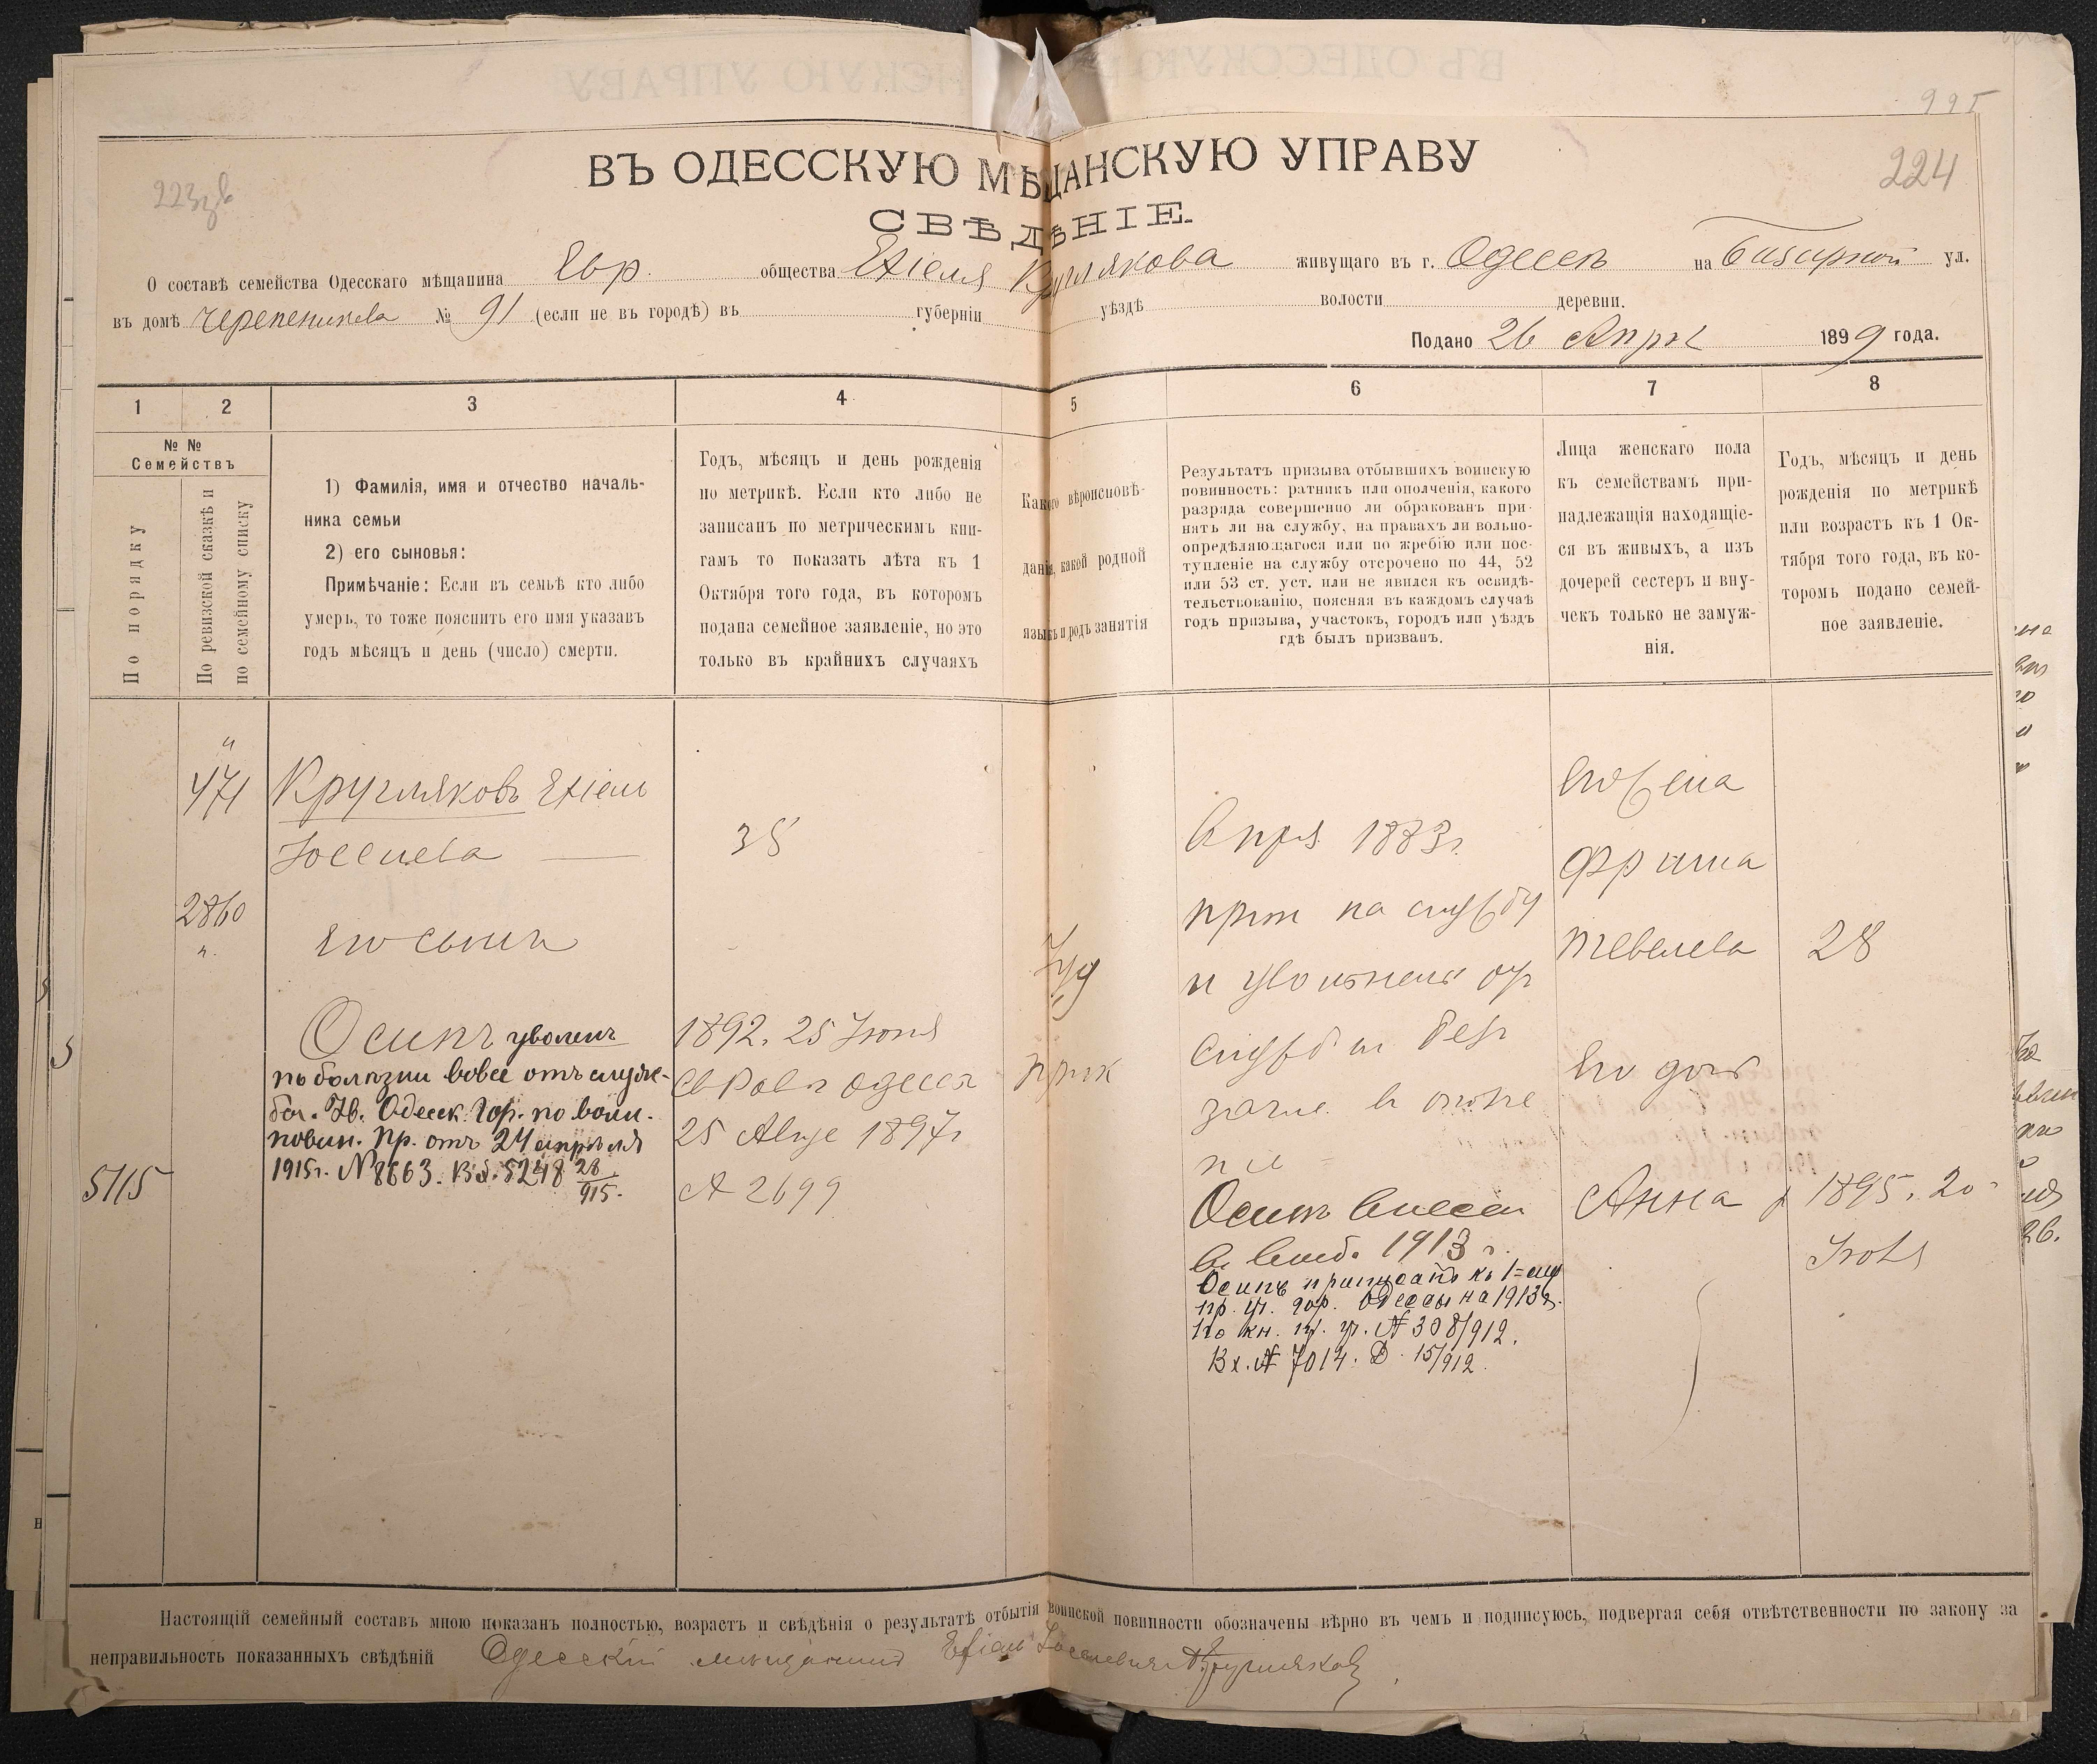 995
ВЪ ОДЕССКУЮ МѢЩАНСКУЮ УПРАВУ
224
СВѢДѢНІЕ.
О составѣ семейства Одесскаго мѣщанина Евр. общества Ехіеля Круглякова живущаго въ г. Одессѣ на Базарной ул.
въ домѣ Черепенникова № 91 (если не въ городѣ) въ губерніи уѣздѣ волости деревни.
Подано 26 Апрѣл 1899 года.
1 2 3 4 5 6 7 8
№ №
Семействъ
По порядку
По ревизской сказкѣ и
по семейному списку
1) Фамилія, имя и отчество началь-
ника семьи
2) его сыновья:
Примѣчаніе: Если въ семьѣ кто либо
умеръ, то тоже пояснить его имя указавъ
годъ мѣсяцъ и день (число) смерти.
Годъ, мѣсяцъ и день рожденія
по метрикѣ. Если кто либо не
записанъ по метрическимъ кни-
гамъ то показать лѣта къ 1
Октября того года, въ которомъ
подана семейное заявленіе, но это
только въ крайнихъ случаяхъ
Какого вѣроисповѣ-
данія, какой родной
языкъ и родъ занятія
Результатъ призыва отбывшихъ воинскую
повинность: ратникъ или ополченія, какого
разряда совершенно ли обракованъ при-
нятъ ли на службу, на правахъ ли вольно-
опредѣляющагося или по жребію или пос-
тупленіе на службу отсрочено по 44, 52
или 53 ст. уст. или не явился къ освидѣ-
тельствованію, поясняя въ каждомъ случаѣ
годъ призыва, участокъ, городъ или уѣздъ
гдѣ былъ призванъ.
Лица женскаго пола
къ семействамъ при-
надлежащія находящіе-
ся въ живыхъ, а изъ
дочерей сестеръ и вну-
чекъ только не замуж-
нія.
Годъ, мѣсяцъ и день
рожденія по метрикѣ
или возрастъ къ 1 Ок-
тября того года, въ ко-
торомъ подано семей-
ное заявленіе.
"
471
Кругляковъ Ехіель
Іоселева
35
2860
"
Его сынъ
Осипъ уволенъ
по болѣзни вовсе отъ служ-
бы. Ув. Одесск. Гор. по воин.
повин. Пр. отъ 24 апрѣля
1915г. № 8663. Вх. 5248 28/915.
5115
1892. 25 Іюня
Св Рав г Одесса
25 Авгу 1897г
№ 2699
Іуд
прик
В приз 1883г.
прин на службу
и уволенъ от
службы безъ
Осипъ внесен
1913 г.
Осипъ приписанъ къ 1=му
пр. уч. гор. Одессы на 1913г.
по кн. пр. уч. № 308/912.
Вх. № 7014. Д. 15/912.
его жена
Фрима
Тевелева
28
Его доч
Анна
1895. 20
Іюля
Настоящій семейный составъ мною показанъ полностью, возрастъ и свѣдѣнія о результатѣ отбытія воинской повинности обозначены вѣрно въ чемъ и подписуюсь, подвергая себя отвѣтственности по закону за
неправильность показанныхъ свѣдѣній Одесскій мѣщанинъ Ехіель Іоселевичъ Кругляковъ